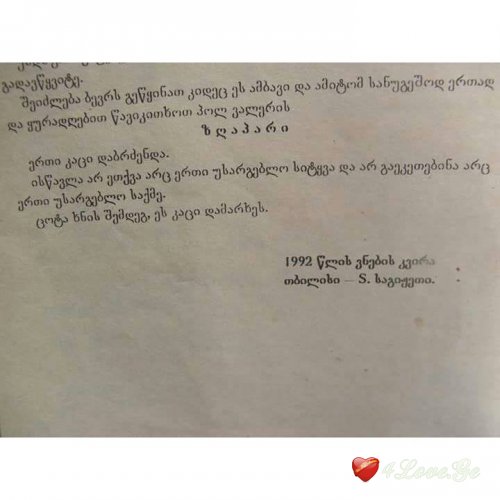 გადავწყვიტე.
შეიძლება ბევრს გეწყინათ კიდეც ეს ამბავი და ამიტომ სანუგეშოდ ერთად
და ყურადღებით წავიკითხოთ პოლ ვალერის
ზღაპარი
ერთი კაცი დაბრძენდა.
ისწავლა არ ეთქვა არც ერთი უსარგებლო სიტყვა და არ გაეკეთებინა არც
ერთი უსარგებლო საქმე.
ცოტა ხნის შემდეგ, ეს კაცი დამარხეს.
1992 წლის ვნების კვირა
თბილისი – S. საგიჟეთი.
4Love.Ge